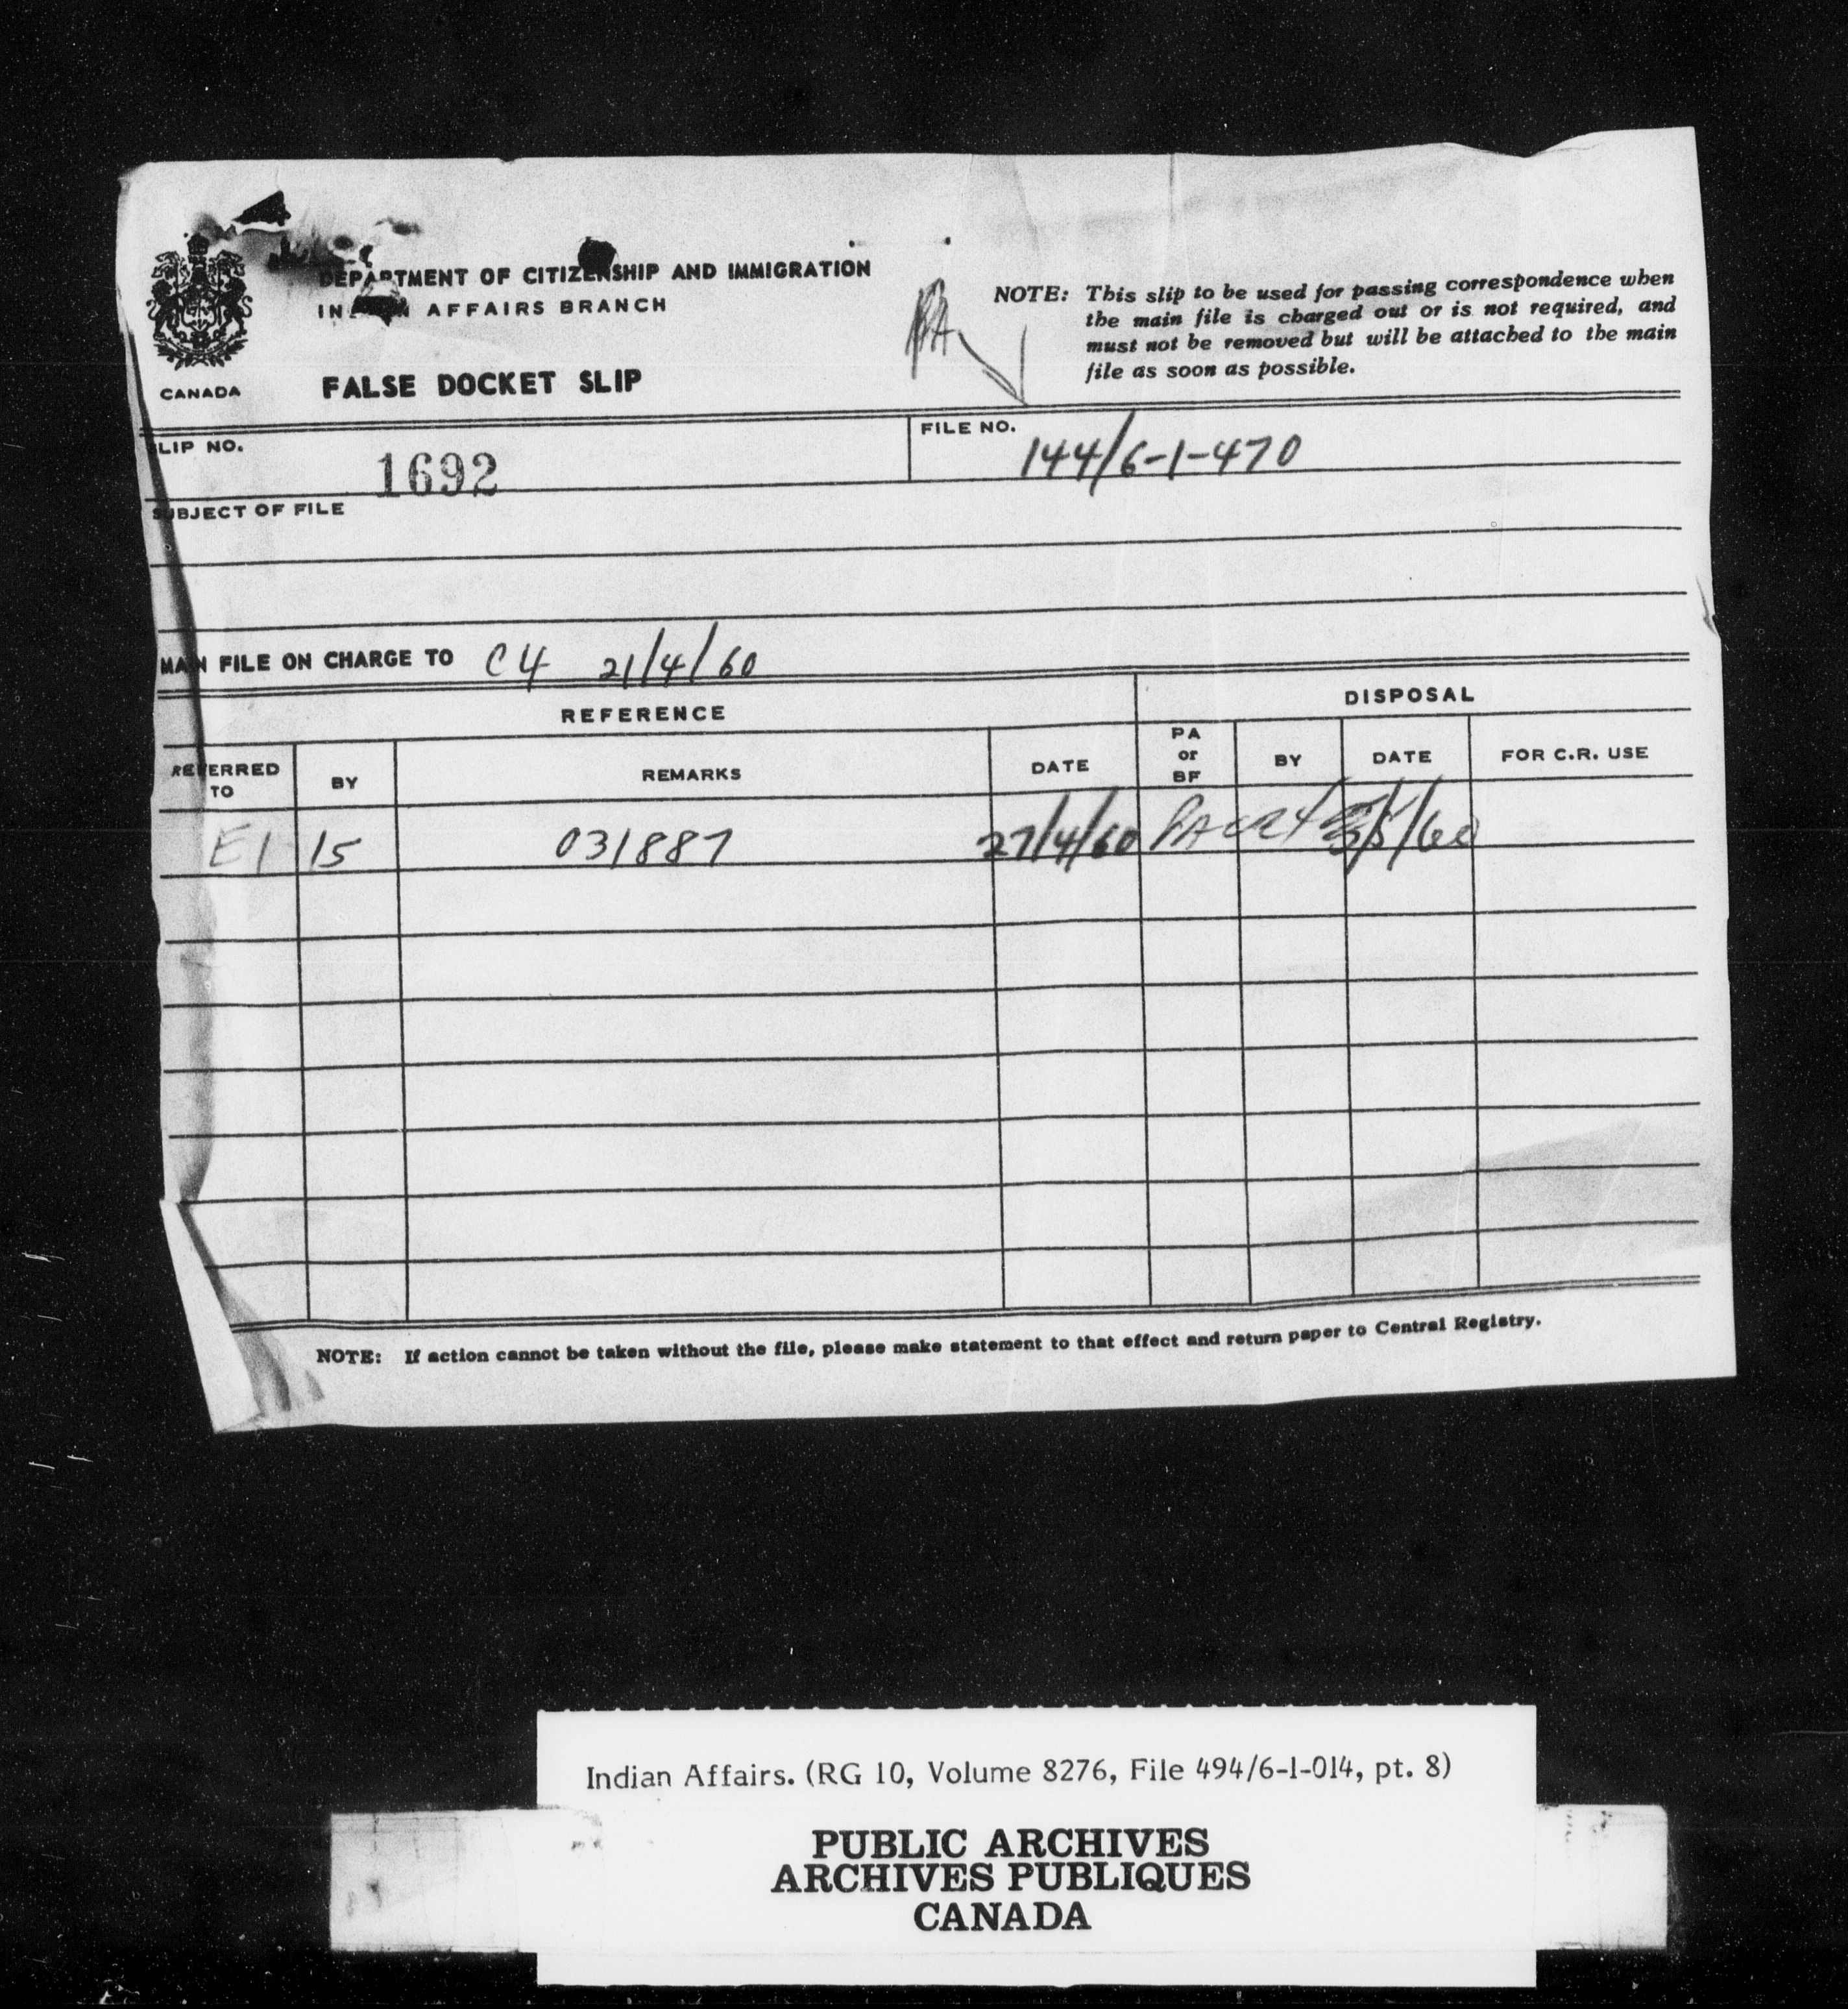 DEPARTMENT OF CITIZENSHIP AND IMMIGRATION
INDIAN AFFAIRS BRANCH
CANADA
FALSE DOCKET SLIP
PA
NOTE: This slip to be used for passing correspondence when
the main file is charged out or is not required, and
must not be removed but will be attached to the main
file as soon as possible.
SLIP NO. 1692
FILE NO. 144/6-1-470
SUBJECT OF FILE
MAIN FILE ON CHARGE TO C4 21/4/60
REFERENCE DISPOSAL
REFERRED TO BY REMARKS DATE PA or BF BY DATE FOR C.R. USE
E1 15 031887 27/4/60 PA /5/60
NOTE: If action cannot be taken without the file, please make statement to that effect and return paper to Central Registry.
Indian Affairs. (RG 10, Volume 8276, File 494/6-1-014, pt. 8)
PUBLIC ARCHIVES
ARCHIVES PUBLIQUES
CANADA